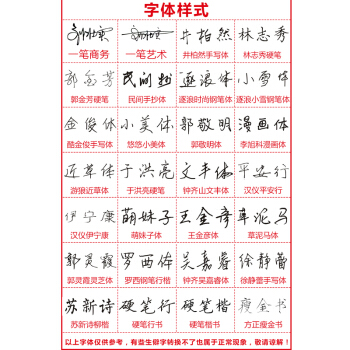 字体样式
井柏然 林志秀
一笔商务 一笔艺术 井柏然手写体 林志秀硬笔
郭金芳 民间抄 逐浪体 小雪体
郭金芳硬笔 民间手抄体 逐浪时尚钢笔体 逐浪小雪钢笔体
金俊体 小美体 郭敬明 漫画体
酷金俊手写体 悠悠小美体 郭敬明体 李旭科漫画体
近草体 于洪亮 文丰体 平安行
游狼近草体 于洪亮硬笔 钟齐山文丰体 汉仪平安行
伊宁康 萌妹子 王金彦 草泥马
汉仪伊宁康 萌妹子体 王金彦体 草泥马体
郭灵霞 罗西体 吴嘉睿 徐静蕾
郭灵霞灵芝体 罗西钢笔行楷 钟齐吴嘉睿体 徐静蕾手写体
苏新诗 硬笔行 硬笔楷 瘦金书
苏新诗柳楷 硬笔行书 硬笔楷书 方正瘦金书
以上字体仅供参考，有些生僻字转换不了也属于正常现象，敬请谅解！